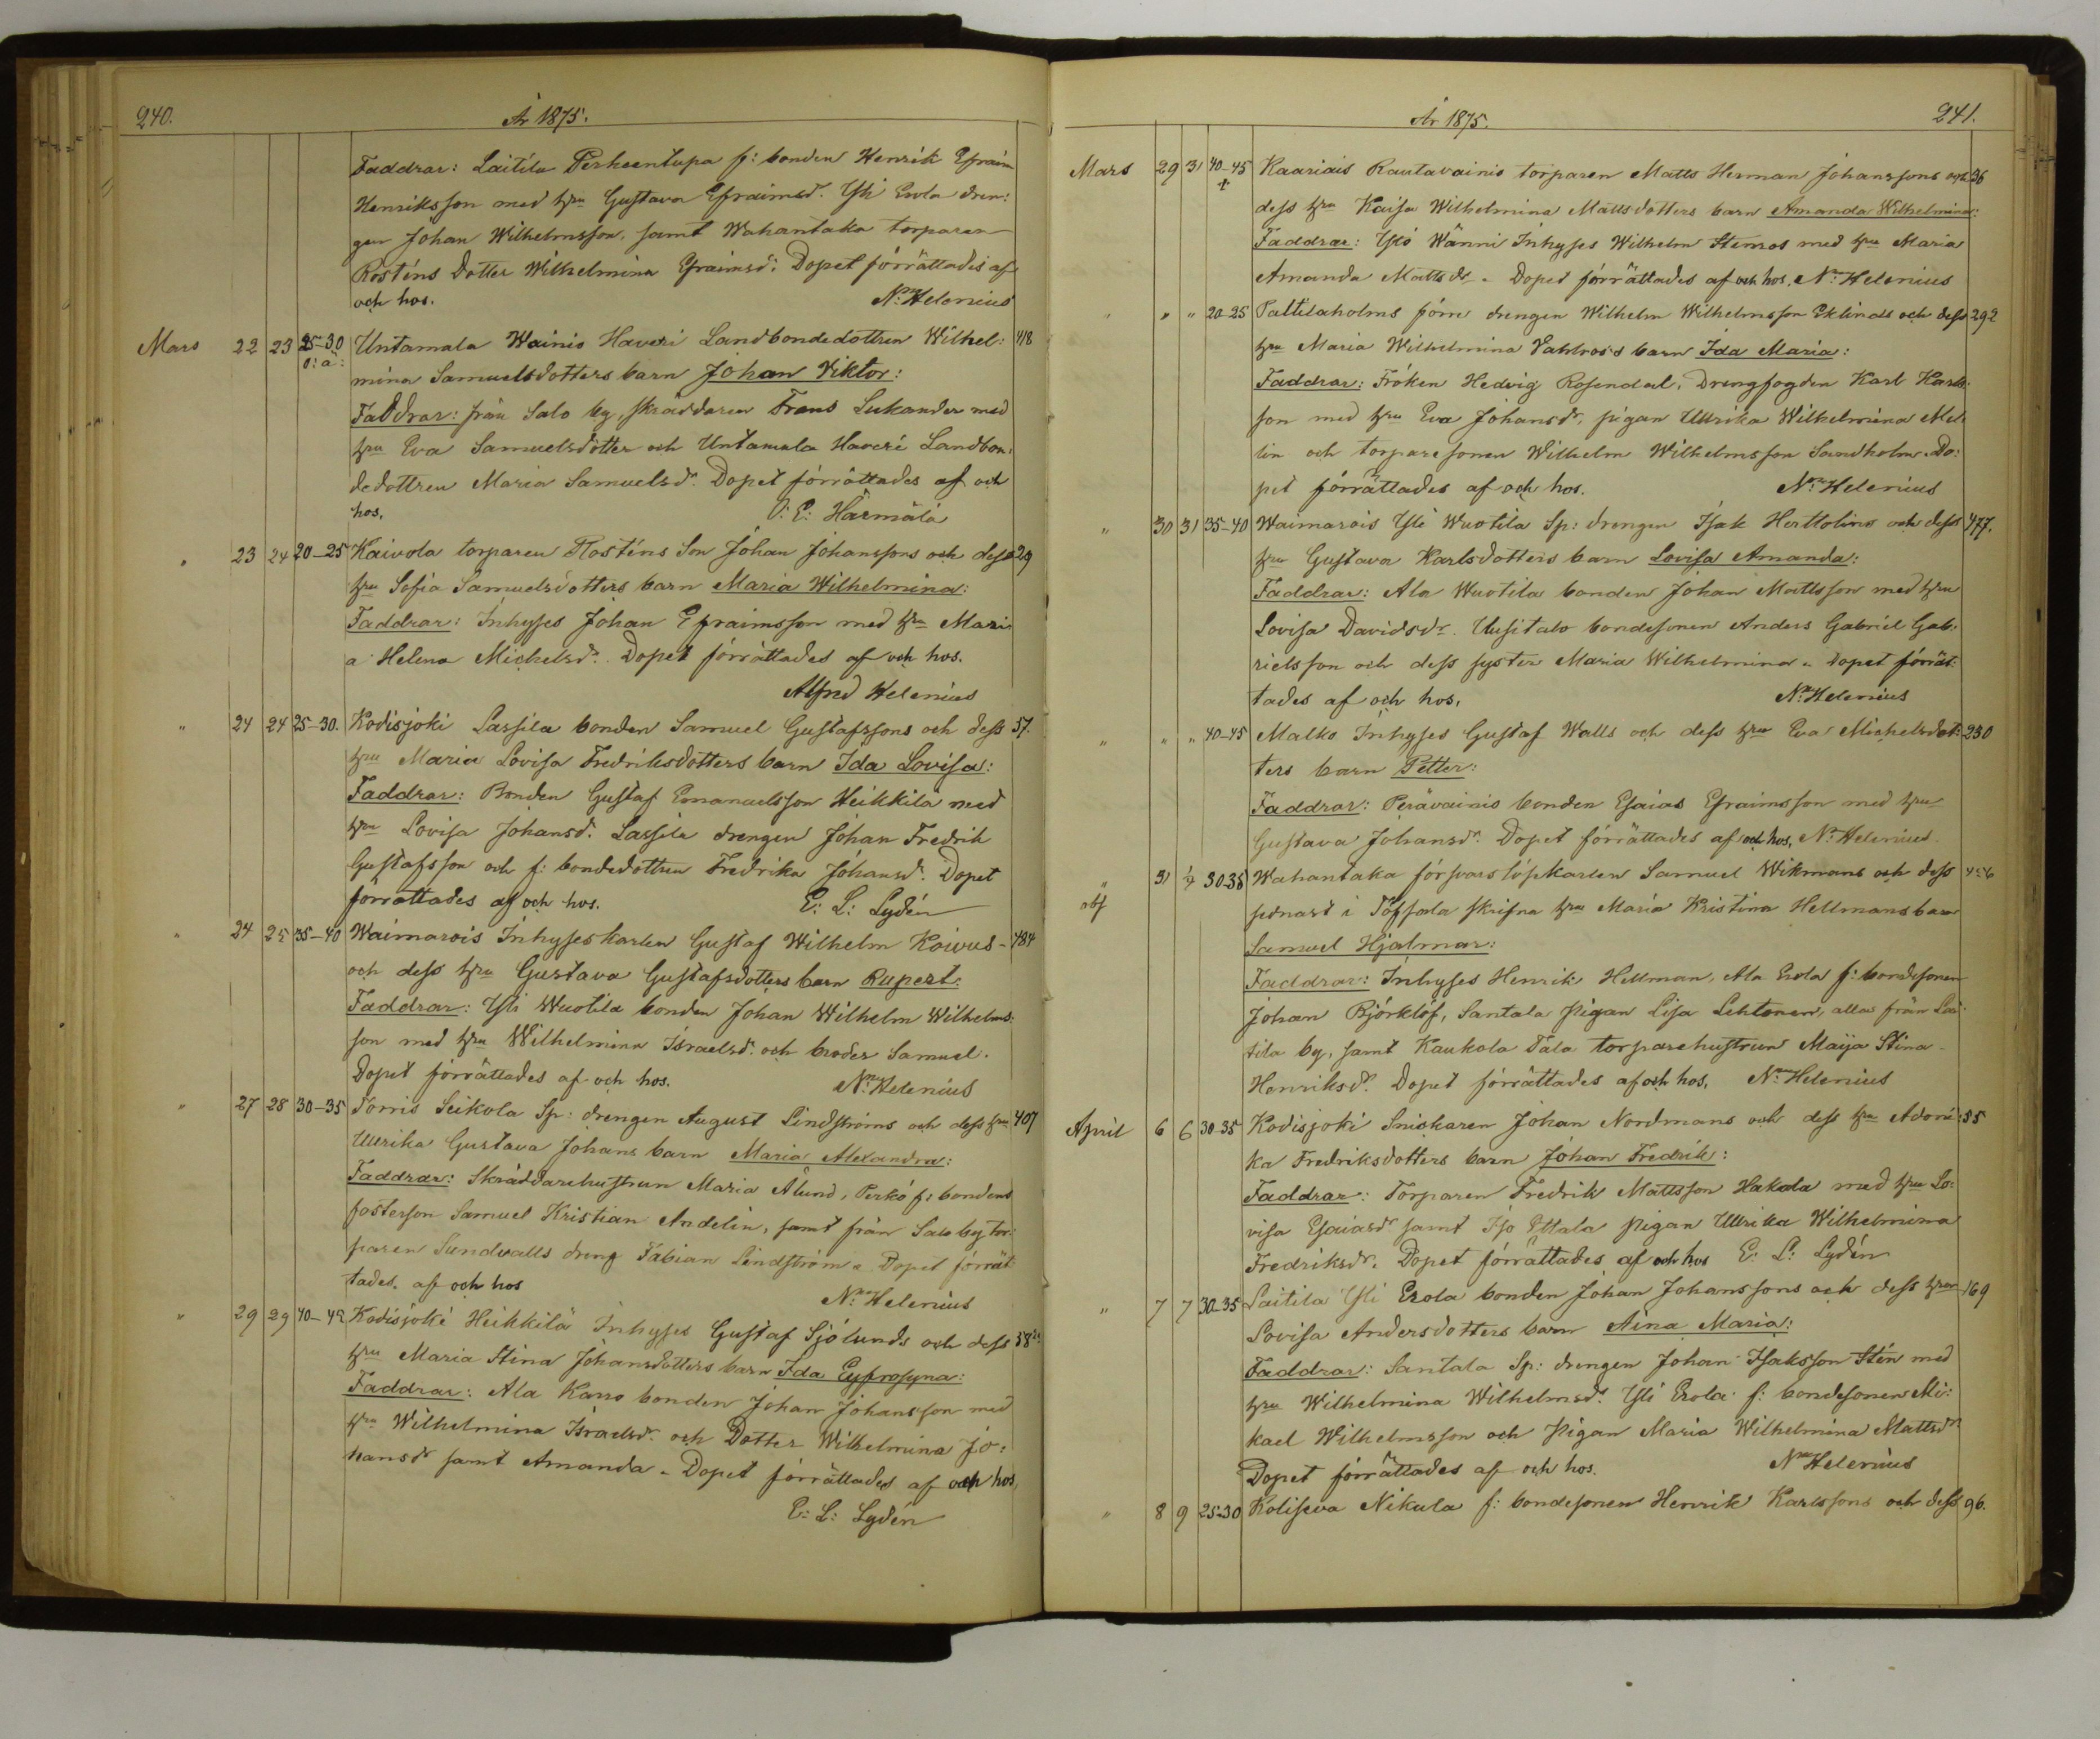 240.
År 1875.
Faddrar: Laitila Perheentupa f: bonden Henrik Efraim
Henriksson med hru Gustava Efraimsdr. Yli Erola dren:
gen Johan Wilhelmsson, samt Wahantaka torparen
Rostins dotter Wilhelmina Efraimsdr: Dopet förrättades af
och hos. Nm: Helenius
Mars 22 23 25-30 Untamala Wainio Haveri Landbondedottren Wilhel: 418
o: ä: mina Samuelsdotters barn Johan Viktor:
Faddrar: från Salo by, skräddaren Frans Lukander med
hru Eva Samuelsdotter och Untamala Haveri Landbon:
dedottren Maria Samuelsdr. Dopet förrättades af och
hos. Härmälä
" 23 24 20-25 Kaivola torparen Rostins Son Johan Johanssons och dess 29
hru Sofia Samuelsdotters barn Maria Wilhelmina:
Faddrar: Inhyses Johan Efraimsson med hru Mari
a Helena Michelsdr. Dopet förrättades af och hos.
Alfred Helenius
" 24 24 25-30. Kodisjoki Lassila bonden Samuel Gustafssons och dess 57.
hru Maria Lovisa Fredriksdotters barn Ida Lovisa:
Faddrar: Bonden Gustaf Emanuelsson Heikkilä med
hru Lovisa Johansdr. Lassila drengen Johan Fredrik
Gustafsson och f: bondedottren Fredrika Johansdr. Dopet
förrättades af och hos. E: L: Lydén
" 24 25 35-40 Waimarois Inhyseskarlen Gustaf Wilhelm Koivus- 484
och dess hru Gustava Gustafsdotters barn Rupert:
Faddrar: Yli Wuotila bonden Johan Wilhelm Wilhelms:
son med hru Wilhelmina Israelsdr. och broder Samuel.
Dopet förrättades af och hos. Nm: Helenius
" 27 28 30-35 Torris Seikola Sp: drengen August Lindströms och dess hru 407
Ullrika Gustava Johans barn Maria Alexandra:
Faddrar: Skräddarehustrun Maria Ålund, Perkö f: bondens
fosterson Samuel Kristian Andelin, samt från Salo by tor:
paren Sundvalls dreng Fabian Lindström. Dopet förrät
tades. af och hos Nm: Helenius
" 29 29 40-45 Kodisjoki Heikkilä Inhyses Gustaf Sjölunds och dess 58
hru Maria Stina Johansdotters barn Ida Eyfrosyna:
Faddrar: Ala Karro bonden Johan Johansson med
hru Wilhelmina Israelsdr. och Dotter Wilhelmina Jo:
hansdr samt Amanda. Dopet förrättades af och hos,
E: L: Lydén
År 1875.
241.
Mars 29 31 40-45 Kaariais Rautavainio torparen Matts Herman Johanssons och 36
+ dess hru Kaisa Wilhelmina Mattsdotters barn Amanda Wilhelmina:
Faddrar: Isó Wänni Inhyses Wilhelm Stenros med hru Maria
Amanda Mattsdr. Dopet förrättades af och hos. Nm: Helenius
" " " 20-25 Palttilaholms förre drengen Wilhelm Wilhelmsson Eklinds och dess 292
hru Maria Wilhelmina Vahlroos's barn Ida Maria:
Faddrar: Fröken Hedvig Rosendal, Drengfogden Karl Karls:
son med hru Eva Johansdr, pigan Ullrika Wilhelmina Mel:
lin och torparesonen Wilhelm Wilhelmsson Sandholm. Do:
pet förrättades af och hos. Nm: Helenius
" 30 31 35-40 Waimarois Yli Wuotila Sp: drengen Isak Herttolins och dess 477.
hru Gustava Karlsdotters barn Lovisa Amanda:
Faddrar: Ala Wuotila bonden Johan Mattsson med hru
Lovisa Davidsdr. Uusitalo bondesonen Anders Gabriel Gab:
rielsson och dess syster Maria Wilhelmina. Dopet förrät:
tades af och hos. Nm: Helenius
" " " 40-45 Malko Inhyses Gustaf Walls och dess hru Eva Michelsdot: 230
ters barn Petter:
Faddrar: Perävainio bonden Esaias Efraimsson med hru
Gustava Johansdr. Dopet förrättades af och hos. Nm: Helenius
" 31 1/4 30-35 Wahantaka försvarslöskarlen Samuel Wikmans och dess
sednast i Töfsala skrifna hru Maria Kristina Hellmans barn
Samuel Hjalmar:
Faddrar: Inhyses Henrik Hellman, Ala Erola f: bondesonen
Johan Björklöf, Santala Pigan Lisa Lehtonen, alla från Lai:
tila by, samt Kaukola Tälä torparehustrun Maija Stina
Henriksdr. Dopet förrättades af och hos. Nm: Helenius
April 6 6 30-35 Kodisjoki Snickaren Johan Nordmans och dess hru Adori: 55
ka Fredriksdotters barn Johan Fredrik:
Faddrar: Torparen Fredrik Mattsson Hakala med hru Lo:
visa Esaiasdr samt Iso Ettala Pigan Ullrika Wilhelmina
Fredriksdr. Dopet förrättades af och hos E: L: Lydén
" 7 7 30-35 Laitila Yli Erola bonden Johan Johanssons och dess hru 169
Lovisa Andersdotters barn Aina Maria:
Faddrar: Santala Sp: drengen Johan Isaksson Stén med
hru Wilhelmina Wilhelmsdr. Yli Erola f: bondesonen Mi:
kael Wilhelmsson och Pigan Maria Wilhelmina Mattsdr
Dopet förrättades af och hos. Nm Helenius
" 8 9 25-30 Koliseva Nikula f: bondesonen Henrik Karlssons och dess 96.